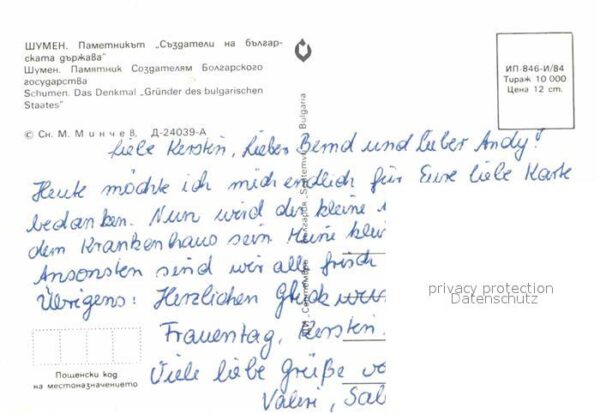 ШУМЕН. Паметникът „Създатели на българ-
ската държава"
Шумен. Памятник Создателям Болгарского
государства
Schumen. Das Denkmal „Gründer des bulgarischen
Staates"
© Сн. М. Минчев. Д-24039-А
ИП-846-И/84
Тираж 10 000
Цена 12 ст.
България
Bulgaria
Liebe Kerstin, lieber Bernd und lieber Andy!
Heute möchte ich mich endlich für Eure liebe Karte
bedanken. Nun wird der kleine
dem Krankenhaus sein
Ansonsten sind wir alle frisch
Übrigens: Herzlichen Glück
Frauentag, Kerstin.
Viele liebe Grüße
Valeri, Sal
privacy protection
Datenschutz
Пощенски код
на местоназначението